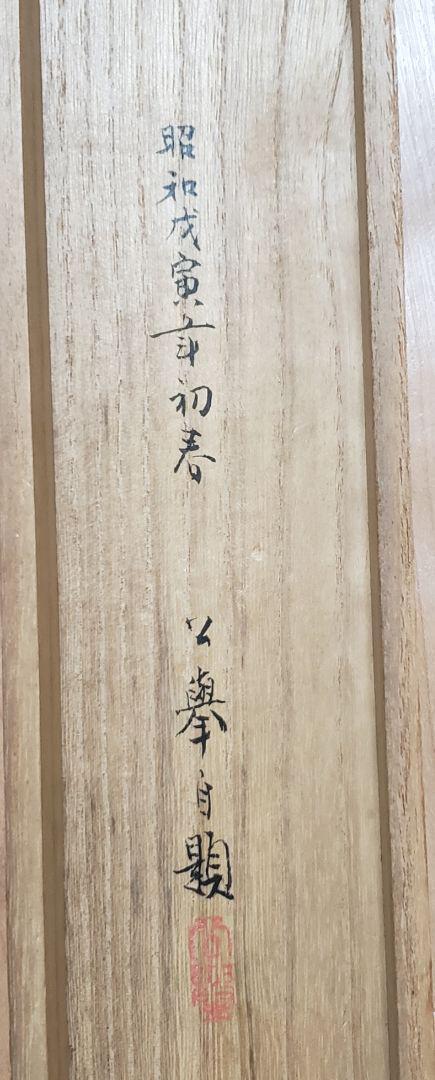 昭和戊寅年初春
公擧自題